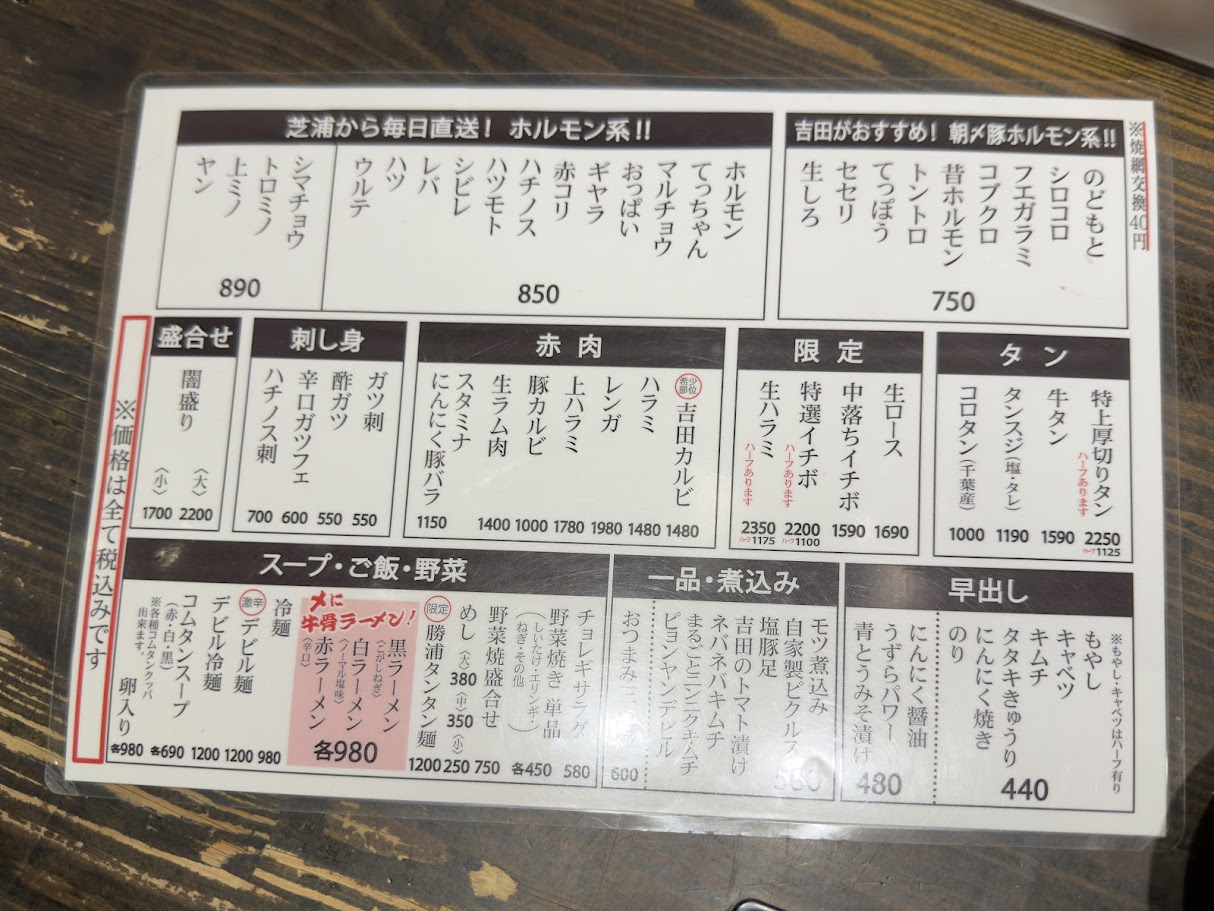 ※焼網交換40円
吉田がおすすめ! 朝〆豚ホルモン系!!
のどもと
シロコロ
フエガラミ
コブクロ
昔ホルモン
トントロ
てっぽう
セセリ
生しろ
750
芝浦から毎日直送! ホルモン系!!
ホルモン
てっちゃん
マルチョウ
おっぱい
ギヤラ
赤コリ
ハチノス
ハツモト
シビレ
レバ
ハツ
ウルテ
850
シマチョウ
トロミノ
上ミノ
ヤン
890
タン
特上厚切りタン
ハーフあります
2250
ハーフ1125
牛タン
1590
タンスジ(塩・タレ)
1190
コロタン(千葉産)
1000
限定
生ロース
1690
中落ちイチボ
1590
特選イチボ
ハーフあります
2200
ハーフ1100
生ハラミ
ハーフあります
2350
ハーフ1175
赤肉
希少部位
吉田カルビ
1480
ハラミ
1480
レンガ
1980
上ハラミ
1780
豚カルビ
1000
生ラム肉
1400
スタミナ
にんにく豚バラ
1150
刺し身
ガツ刺
550
酢ガツ
550
辛口ガツフェ
600
ハチノス刺
700
盛合せ
闇盛り
〈大〉
2200
〈小〉
1700
※価格は全て税込みです
早出し
※もやし・キャベツはハーフ有り
もやし
キャベツ
キムチ
タタキきゅうり
にんにく焼き
のり
440
にんにく醤油
うずらパワー
青とうみそ漬け
480
一品・煮込み
モツ煮込み
自家製ピクルス
塩豚足
吉田のトマト漬け
ネバネバキムチ
まるごとニンニクキムチ
ピョンヤンデビル
おつまみ
600
スープ・ご飯・野菜
チョレギサラダ
580
野菜焼き 単品
(しいたけ・エリンギ・
ねぎ・その他)
各450
野菜焼盛合せ
750
めし 〈大〉380 〈中〉350 〈小〉250
限定
勝浦タンタン麺
1200
〆に
牛骨ラーメン!
黒ラーメン
〈こがしねぎ〉
白ラーメン
〈ノーマル塩味〉
赤ラーメン
〈辛口〉
各980
冷麺
980
激辛
デビル麺
1200
デビル冷麺
1200
コムタンスープ
(赤・白・黒)
各690
※各種コムタンクッパ
出来ます。
卵入り
各980